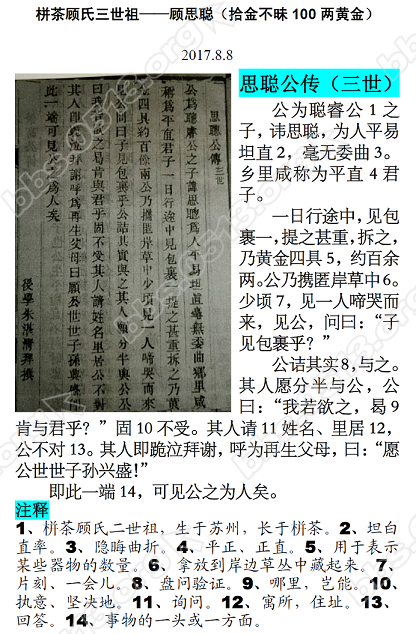 栟茶顾氏三世祖——顾思聪（拾金不昧100两黄金）
2017.8.8
思聪公传（三世）
公为聪睿公1之
子，讳思聪，为人平易
坦直2，毫无委曲3。
乡里咸称为平直4君
子。
一日行途中，见包
裹一，提之甚重，拆之，
乃黄金四具5，约百余
两。公乃携匿岸草中6。
少顷7，见一人啼哭而
来，见公，问曰：“子
见包裹乎？”
公诘其实8，与之。
其人愿分半与公，公
曰：“我若欲之，曷9
肯与君乎？”固10不受。其人请11姓名、里居12，
公不对13。其人即跪泣拜谢，呼为再生父母，曰：“愿
公世世子孙兴盛！”
即此一端14，可见公之为人矣。
注释
1、栟茶顾氏二世祖，生于苏州，长于栟茶。2、坦白
直率。3、隐晦曲折。4、平正、正直。5、用于表示
某些器物的数量。6、拿放到岸边草丛中藏起来。7、
片刻、一会儿。8、盘问验证。9、哪里，岂能。10、
执意、坚决地。11、询问。12、寓所，住址。13、
回答。14、事物的一头或一方面。
思聰公傳 三世
公為聰睿公之子諱思聰為人平易坦直毫無委曲鄉里咸
稱為平直君子一日行途中見包裹一提之甚重拆之乃黃
金四具約百餘兩公乃攜匿岸草中少頃見一人啼哭而來
見公問曰子見包裹乎公詰其實與之其人願分半與公公
曰我若欲之曷肯與君乎固不受其人請姓名里居公不對
其人即跪泣拜謝呼為再生父母曰願公世世子孫興盛
即此一端可見公之為人矣
後學朱湛清拜撰
bbs.0513.org